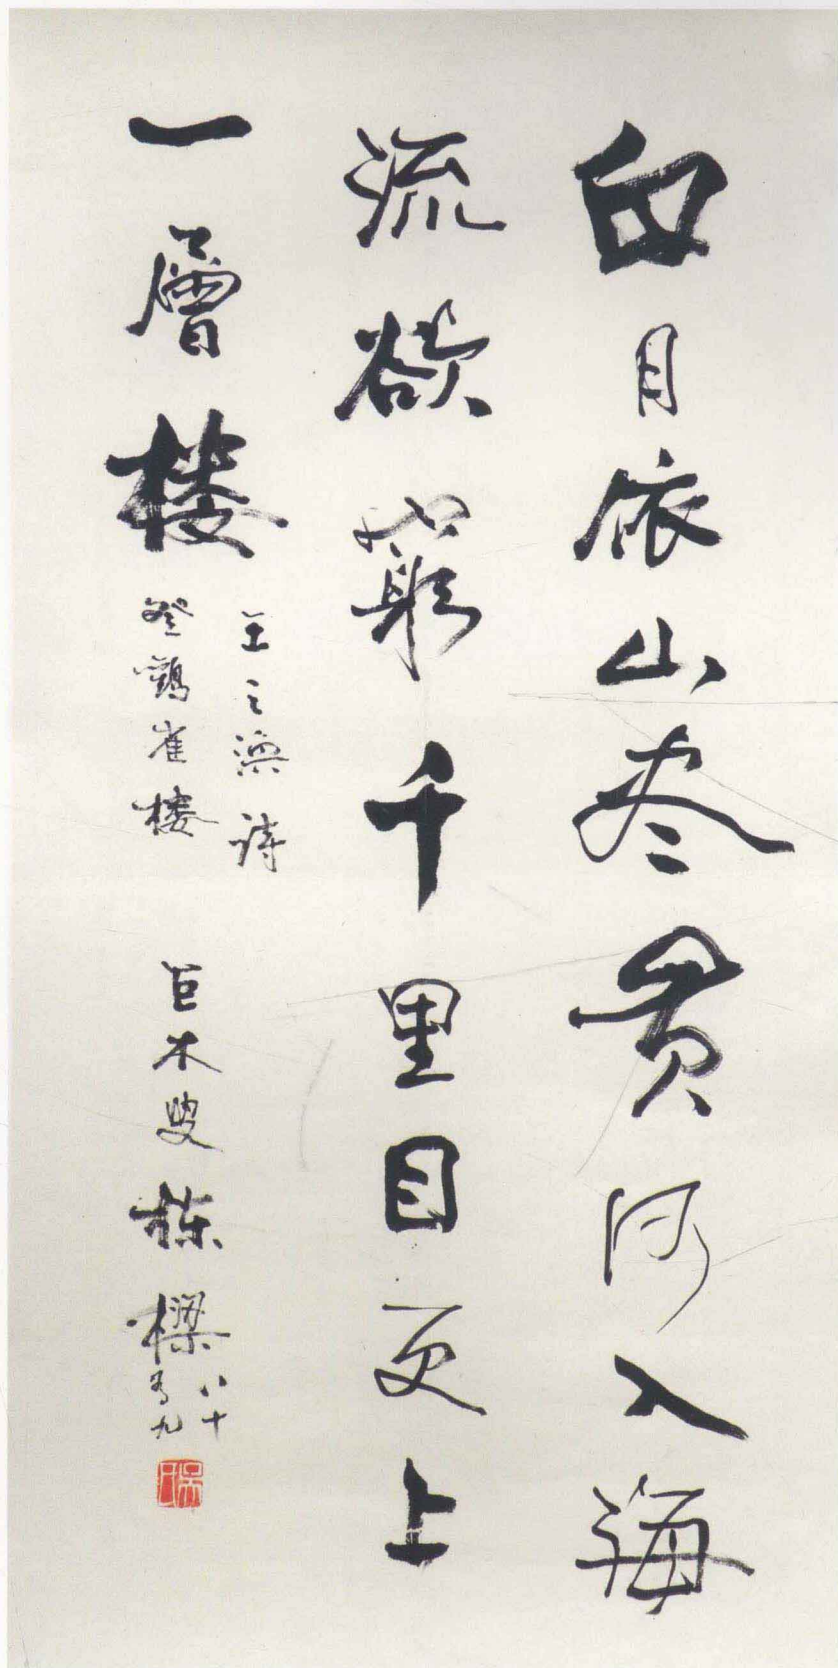 白日依山尽黄河入海
流欲窮千里目更上
一層楼
王之渙詩
登鸛雀楼
巨木叟栋樑
八十
有九